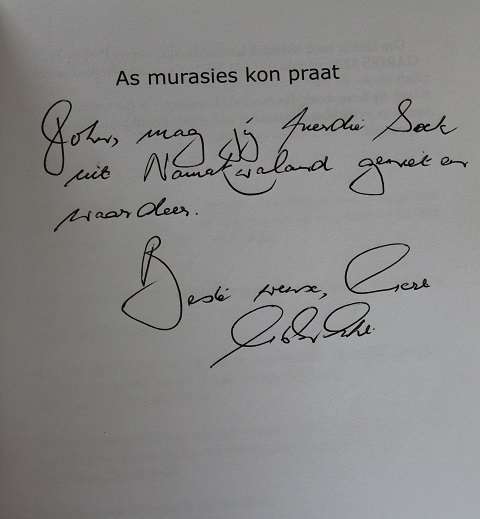 As murasies kon praat
John, mag jy hierdie boek
uit Namakwaland geniet en
waardeer.
Beste wense,